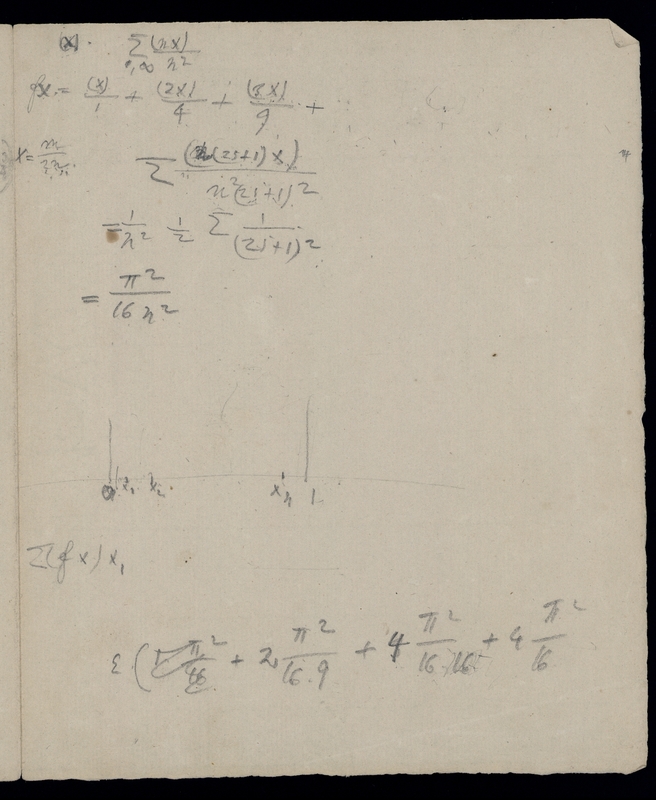 (x). Σ (nx)/n²
1,∞
fx = (x)/1 + (2x)/4 + (3x)/9 +
x = m/2n.
Σ (n(2s+1)x)/n²(2s+1)²
= 1/n² 1/2 Σ 1/(2s+1)²
= π²/16n²
0 x₁ x₂. xₙ 1
Σ(fx)x₁
ε( π²/16 + 2 π²/16.9 + 4 π²/16.16 + 4 π²/16